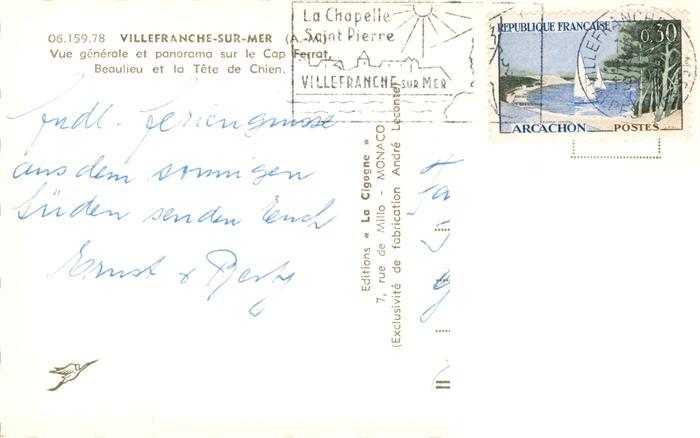 06.159.78 VILLEFRANCHE-SUR-MER (A.-M.)
Vue générale et panorama sur le Cap Ferrat,
Beaulieu et la Tête de Chien.
La Chapelle
Saint Pierre
VILLEFRANCHE SUR MER
REPUBLIQUE FRANÇAISE
0,30
ARCACHON POSTES
frdl. Feriengrüsse
aus dem sonnigen
Süden senden Euch
Ernst &
Editions « La Cigogne »
7, rue de Millo - MONACO
(Exclusivité de fabrication André Leconte)